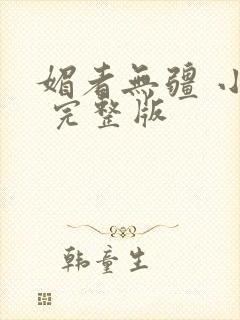 媚者無疆 小
完整版
韩童生